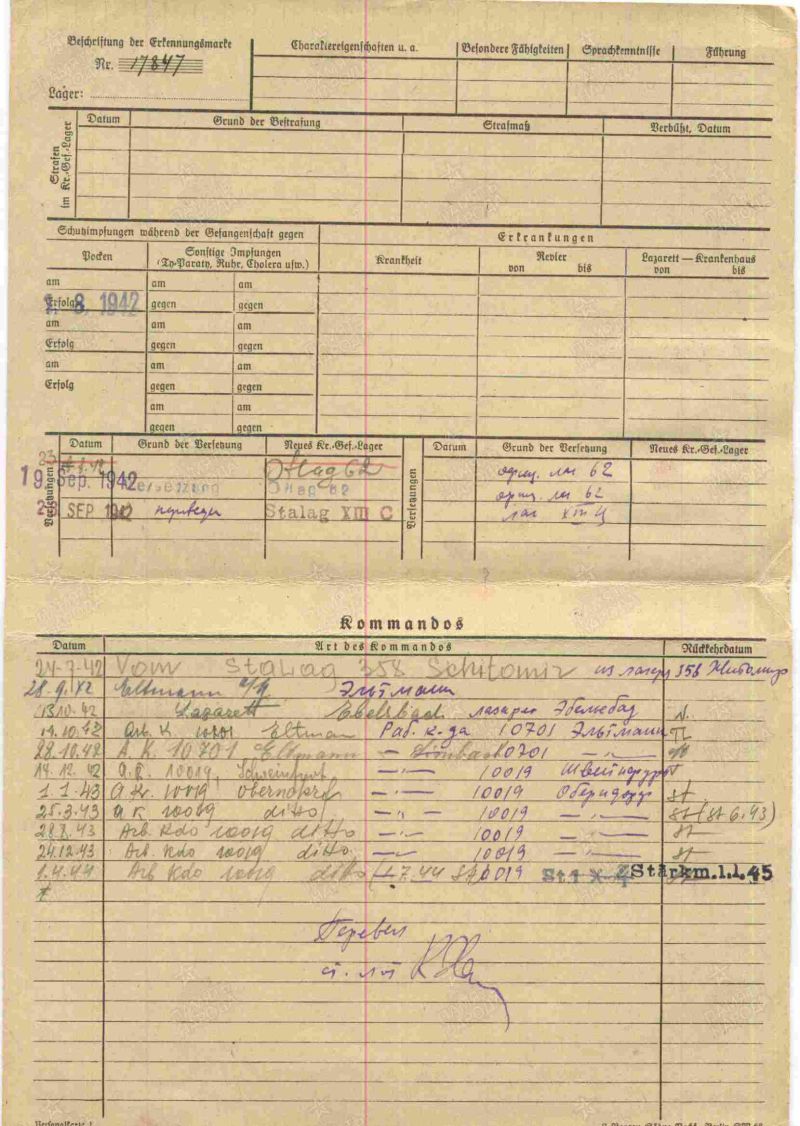 Beschriftung der Erkennungsmarke
Nr. 17847
Lager:
Charaktereigenschaften u. a.
Besondere Fähigkeiten
Sprachkenntnisse
Führung
Strafen im Kr.-Gef.-Lager
Datum
Grund der Bestrafung
Strafmaß
Verbüßt, Datum
Schutzimpfungen während der Gefangenschaft gegen
Erkrankungen
Pocken
Sonstige Impfungen
(Ty-Paraty, Ruhr, Cholera usw.)
Krankheit
Revier
von bis
Lazarett — Krankenhaus
von bis
am am am
Erfolg gegen gegen
8. 1942
am am am
Erfolg gegen gegen
am am am
Erfolg gegen gegen
am am
gegen gegen
Versetzungen
Datum Grund der Versetzung Neues Kr.-Gef.-Lager
Oflag 62
19. Sep. 1942 Versetzung Oflag 62
SEP 1942 Stalag XIII C
Versetzungen
Datum Grund der Versetzung Neues Kr.-Gef.-Lager
офиц. лаг 62
офиц. лаг 62
лаг XIII Ц
Kommandos
Datum Art des Kommandos Rückkehrdatum
24-7-42 Vom Stalag 358 Schitomir из лагеря 358 Житомир
28.9.42 Eltmann Эльтманн
13.10.42 Lazarett Ebelsbach лазарет
19.10.42 Arb. K 10701 Eltman Раб. к-да 10701 Эльтманн
28.10.42 A. K. 10701 Eltmann 0701
14.12.42 10019 Schweinfurt 10019 Швейнфурт
1.1.43 A.K. 10019 10019 St
25.3.43 A K 10019 ditto 10019 St (St 6.43)
28.8.43 Arb. Kdo 10019 ditto 10019 St
24.12.43 Arb. Kdo 10019 ditto 10019 St
1.4.44 Arb Kdo 10019 ditto 10019 Stärkm.1.1.45
Перевел
ст. л-т
Personalkarte I